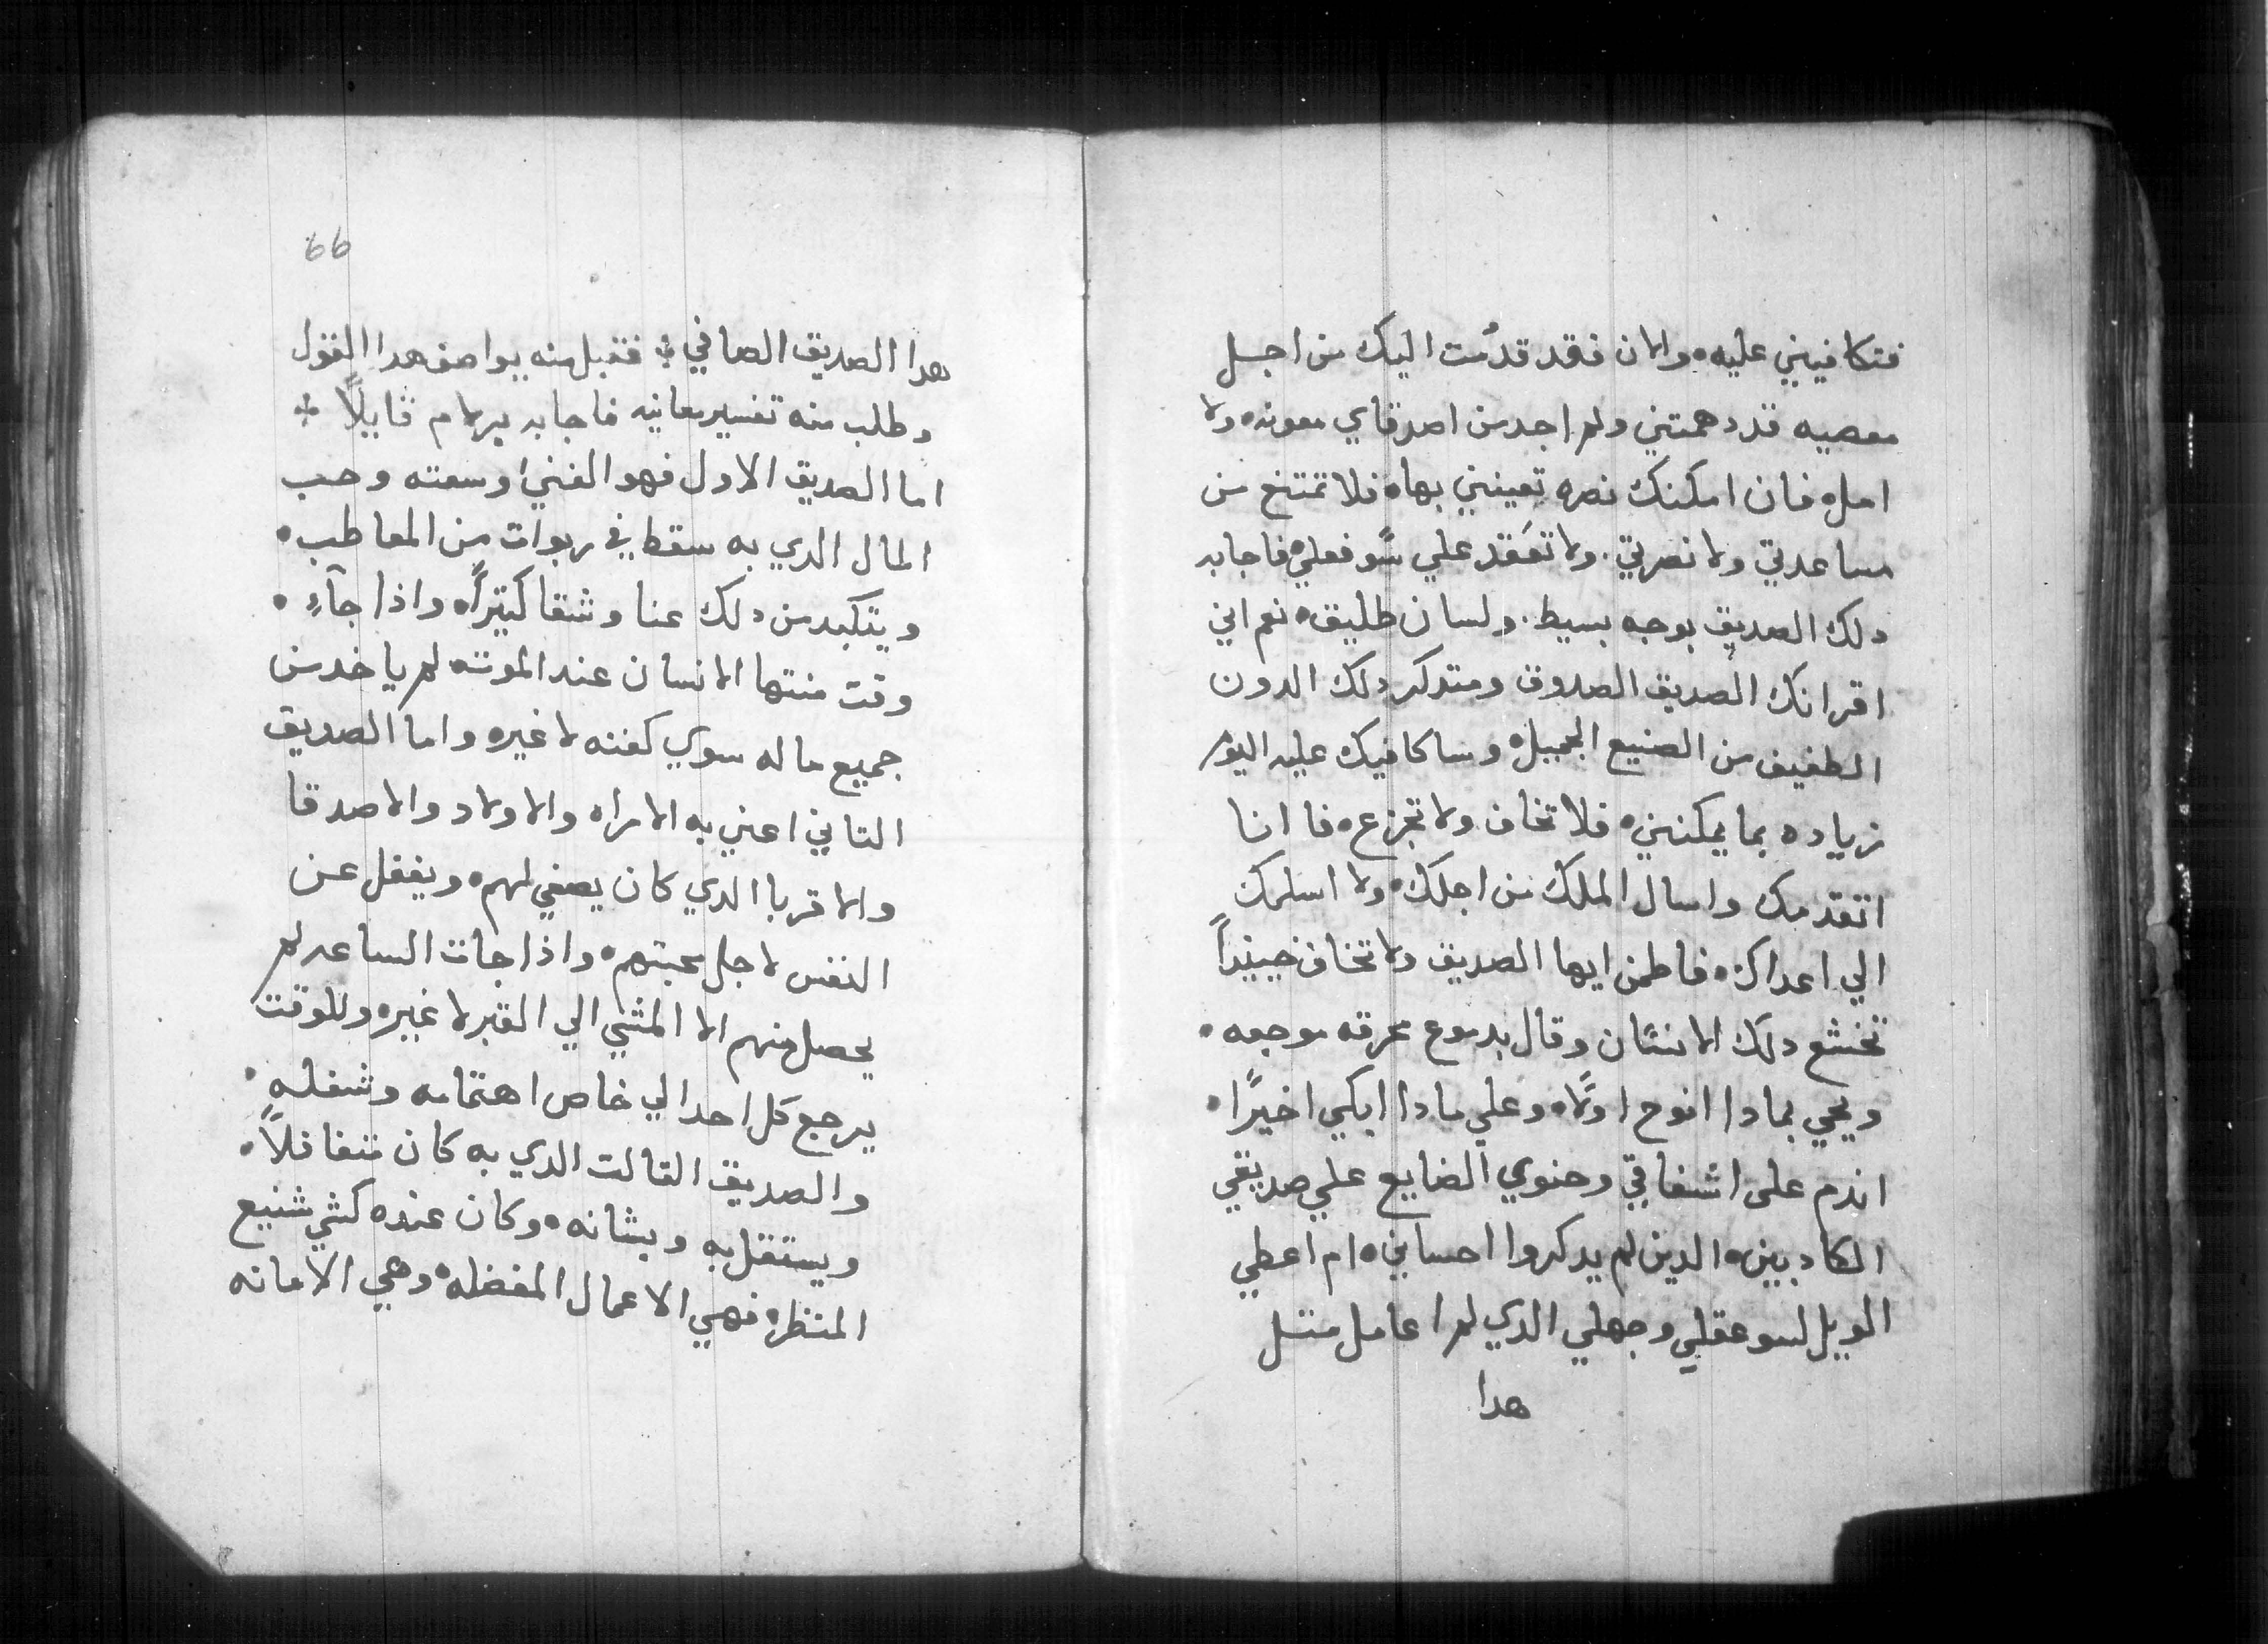 فتكافيني عليه. والان فقد قدّمت اليك من اجل
معصيه قد دهمتني ولم اجد من اصدقاي معونه. ولا
امل. فان امكنك نصره تعينني بها. فلا تمتنع من
مساعدتي ولا نصرتي. ولا تفقد علي سو فعلي. فاجابه
دلك الصديق بوجه بسيط. ولسان طليق. نعم اني
اقر انك الصديق الصدوق ومتدكر دلك الدون
الطفيف من الصنيع الجميل. وساكافيك عليه اليوم
زياده بما يمكنني. فلا تخاف ولا تجزع. فانا
اتقدمك واسال الملك من اجلك. ولا اسلمك
الي اعداك. فاطمن ايها الصديق ولا تخاف حينيداً
تخشع دلك الانسان وقال بدموع محرقه موجعه.
ويحي بمادا انوح اولاً. وعلي مادا ابكي اخيرًا.
اندم على اشفاقي وحنوي الضايع علي صديقي
الكادبين. الدين لم يدكروا احساني. ام اعطي
الويل لسو عقلي وجهلي الدي لم اعامل متل
هدا
66
هدا الصديق الصافي فتقبل منه يواصف هدا القول
وطلب منه تفسير معانيه فاجابه برلام قايلاً
اما الصديق الاول فهو الغني وسعته وحب
المال الدي به سقط في ربوات من المعاطب.
ويتكبد من دلك عنا وشقا كتيراً. واذا جآء.
وقت منتها الانسان عند الموته لم ياخد من
جميع ماله سوي كفنه لا غيره واما الصديق
التاني اعني به الامراه والاولاد والاصدقا
والاقربا الدي كان يصغي لهم. ويغفل عن
النفس لاجل محبتهم. واذا جات الساعه لم
يحصل منهم الا المشي الي القبر لا غيره وللوقت
يرجع كل احد الي خاص اهتمامه وشغله.
والصديق التالت الدي به كان متغافلاً.
ويستقل به وبشانه. وكان عنده كشي شنيع
المنظر. فهي الاعمال المفضله. وهي الامانه